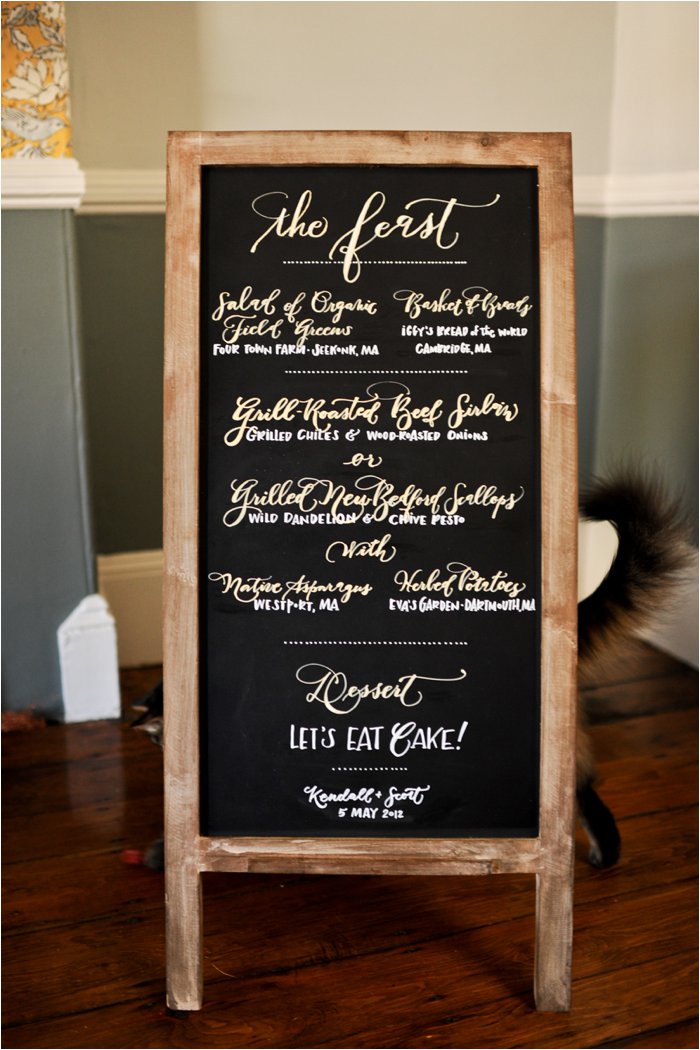 the feast
Salad of Organic
Field Greens
FOUR TOWN FARM · SEEKONK, MA
Basket of Breads
IGGY'S BREAD of the WORLD
CAMBRIDGE, MA
Grill-Roasted Beef Sirloin
GRILLED CHILES & WOOD-ROASTED ONIONS
or
Grilled New Bedford Scallops
WILD DANDELION & CHIVE PESTO
with
Native Asparagus
WESTPORT, MA
Herbed Potatoes
EVA'S GARDEN - DARTMOUTH, MA
Dessert
LET'S EAT CAKE!
Kendall + Scott
5 MAY 2012